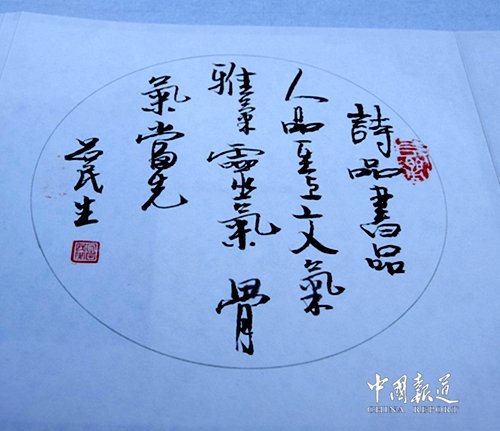 詩品書品
人品重文氣
雅氣靈氣骨
氣當先
吕民生
中國報道
CHINA REPORT